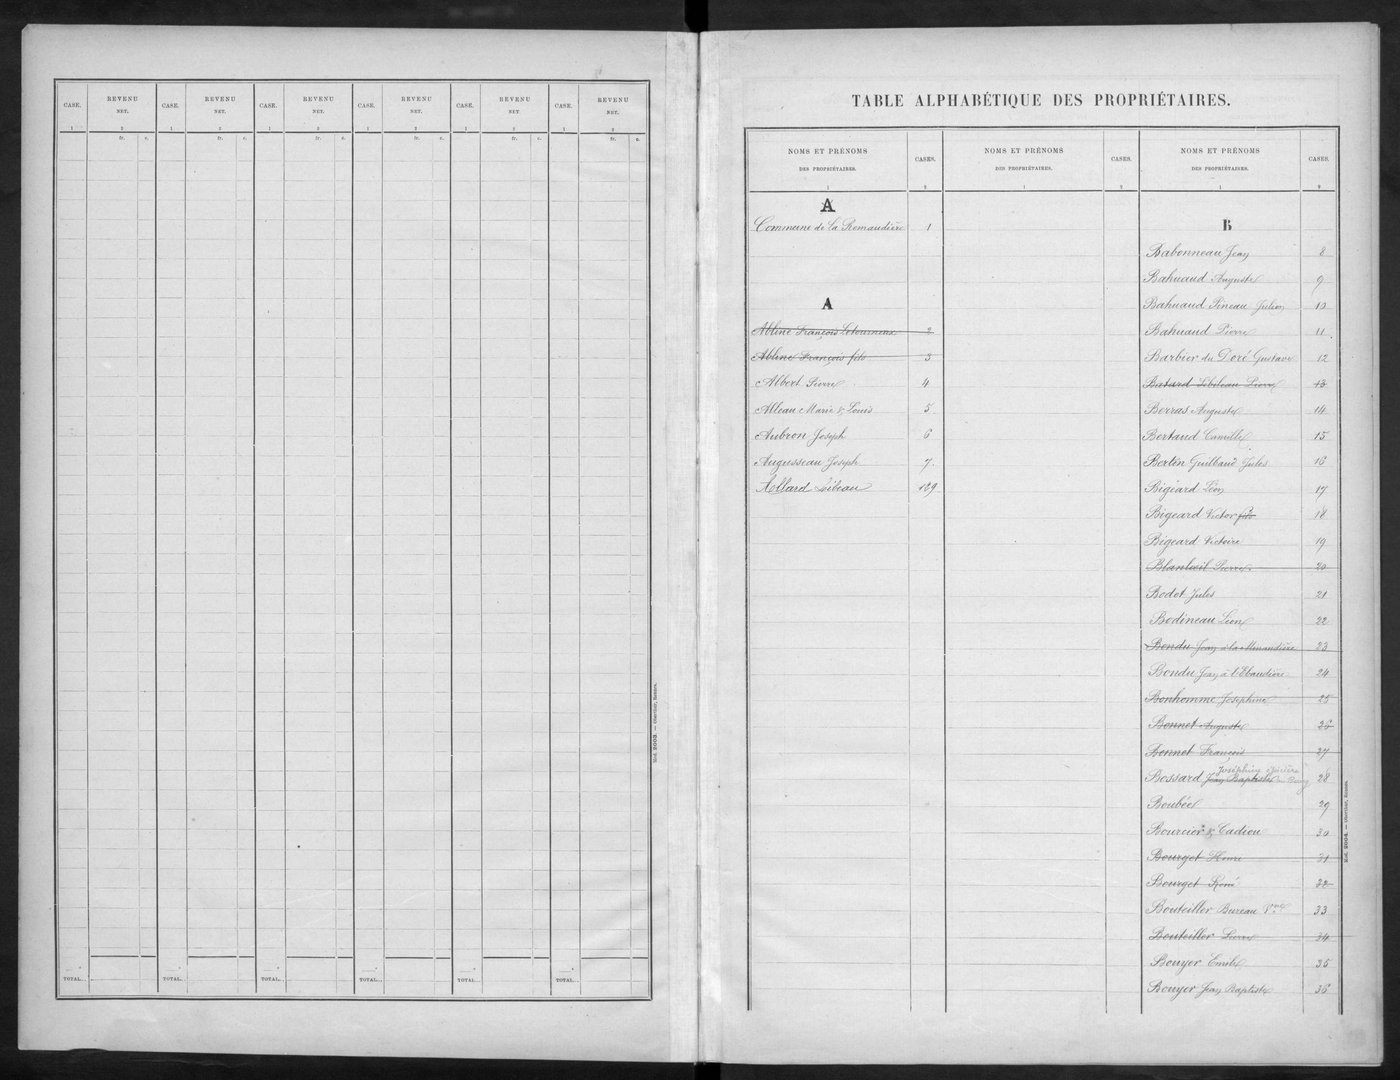 CASE. REVENU NET. CASE. REVENU NET. CASE. REVENU NET. CASE. REVENU NET. CASE. REVENU NET. CASE. REVENU NET.
1 2 1 2 1 2 1 2 1 2 1 2
fr. c. fr. c. fr. c. fr. c. fr. c. fr. c.
TOTAL.. TOTAL.. TOTAL.. TOTAL.. TOTAL.. TOTAL..
Mod. 2003. — Oberthür, Rennes.
TABLE ALPHABÉTIQUE DES PROPRIÉTAIRES.
NOMS ET PRÉNOMS DES PROPRIÉTAIRES. CASES. NOMS ET PRÉNOMS DES PROPRIÉTAIRES. CASES. NOMS ET PRÉNOMS DES PROPRIÉTAIRES. CASES.
1 2 1 2 1 2
A
Commune de la Remaudière 1
A
Abline François Letourneux 2
Abline François fils 3
Albert Pierre 4
Alleau Marie & Louis 5
Aubron Joseph 6
Augusseau Joseph 7
Allard Libeau 129
B
Babonneau Jean 8
Bahuaud Auguste 9
Bahuaud Pineau Julien 10
Bahuaud Pierre 11
Barbier du Doré Gustave 12
Batard Lebileau Pierre 13
Berras Auguste 14
Bertaud Camille 15
Bertin Guilbaud Jules 16
Bigeard Léon 17
Bigeard Victor fils 18
Bigeard Victoire 19
Blanloeil Pierre 20
Bodet Jules 21
Bodineau Léon 22
Bondu Jean à la Menandière 23
Bondu Jean à l'Ebaudière 24
Bonhomme Joséphine 25
Bonnet Auguste 26
Bonnet François 27
Joséphine épicière
Bossard Jean Baptiste au Bourg 28
Boubée 29
Bourcier & Cadiou 30
Bourget Henri 31
Bourget René 32
Bouteiller Bureau Vve 33
Bouteiller Pierre 34
Bouyer Emile 35
Bouyer Jean Baptiste 36
Mod. 2004. — Oberthür, Rennes.